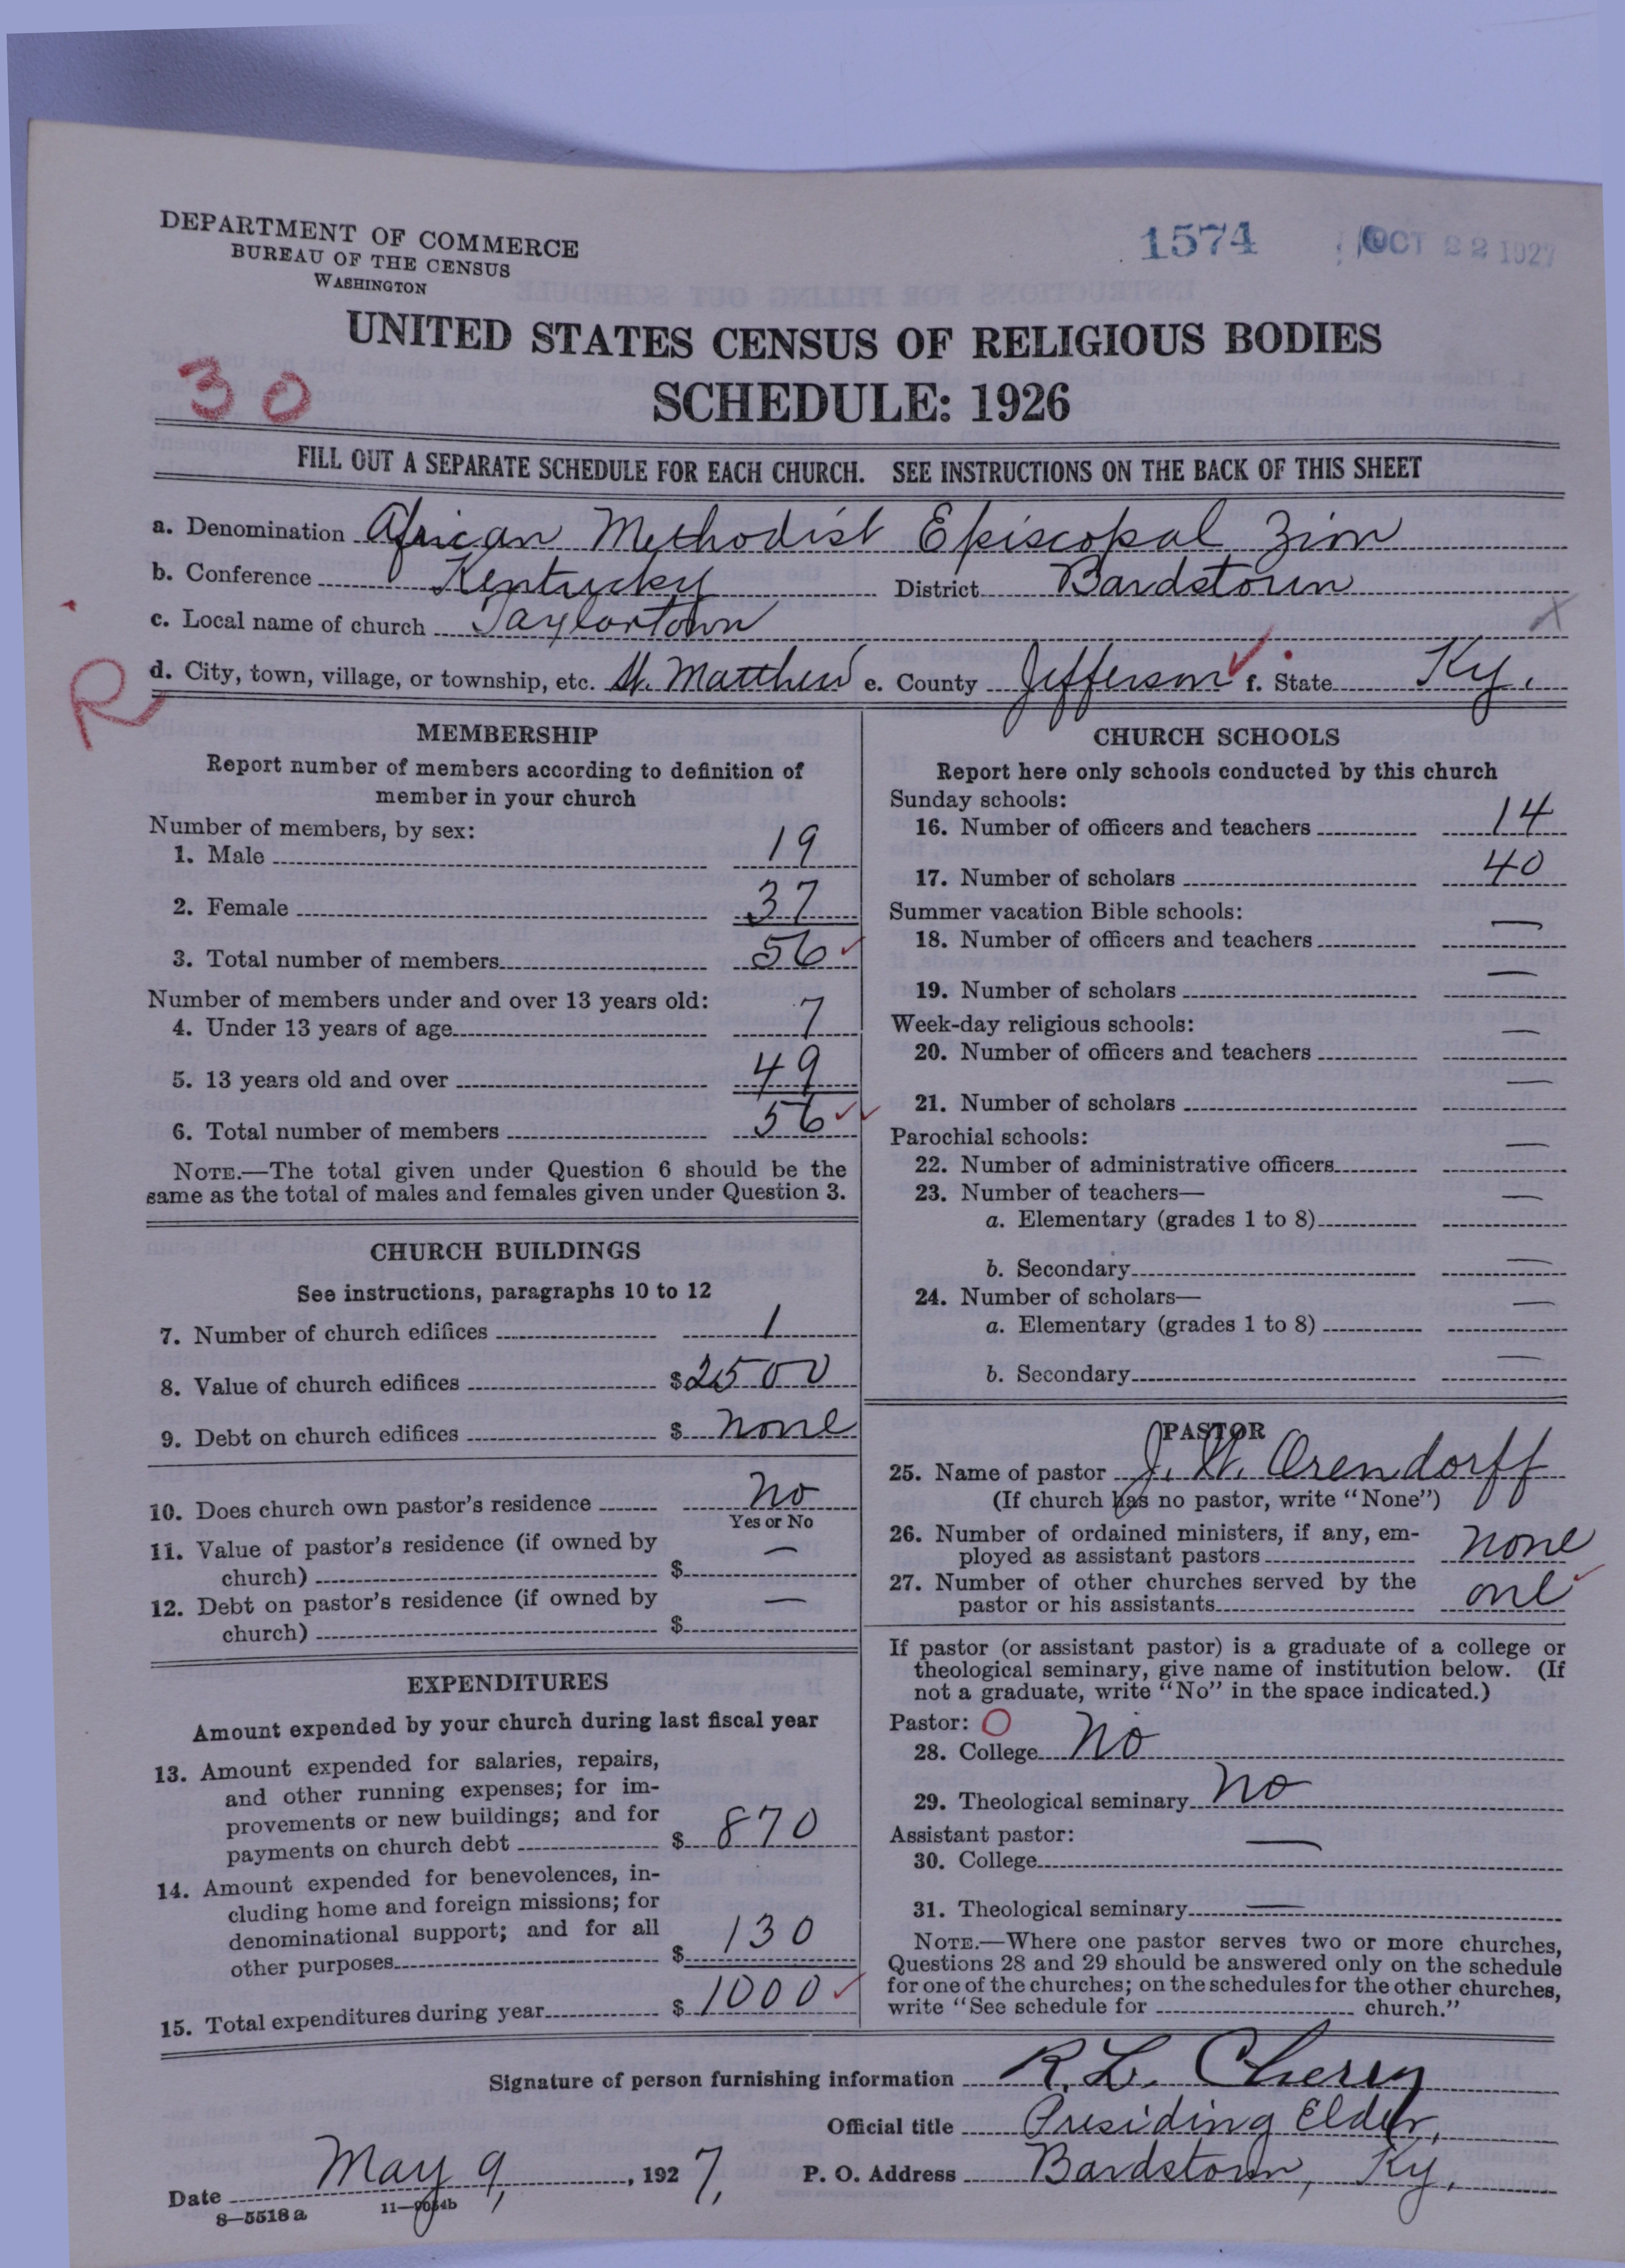 DEPARTMENT OF COMMERCE
BUREAU OF THE CENSUS
WASHINGTON
1574 OCT 22 1927
UNITED STATES CENSUS OF RELIGIOUS BODIES
30 SCHEDULE: 1926
FILL OUT A SEPARATE SCHEDULE FOR EACH CHURCH. SEE INSTRUCTIONS ON THE BACK OF THIS SHEET
a. Denomination African Methodist Episcopal Zion
b. Conference Kentucky District Bardstown
c. Local name of church Taylortown
R d. City, town, village, or township, etc. St. Matthew e. County Jefferson f. State Ky.
MEMBERSHIP
Report number of members according to definition of
member in your church
Number of members, by sex:
1. Male 19
2. Female 37
3. Total number of members 56
Number of members under and over 13 years old:
4. Under 13 years of age 7
5. 13 years old and over 49
6. Total number of members 56
NOTE.—The total given under Question 6 should be the
same as the total of males and females given under Question 3.
CHURCH BUILDINGS
See instructions, paragraphs 10 to 12
7. Number of church edifices 1
8. Value of church edifices $2500
9. Debt on church edifices $ none
10. Does church own pastor's residence No
Yes or No
11. Value of pastor's residence (if owned by
church) $ —
12. Debt on pastor's residence (if owned by
church) $ —
EXPENDITURES
Amount expended by your church during last fiscal year
13. Amount expended for salaries, repairs,
and other running expenses; for im-
provements or new buildings; and for
payments on church debt $ 870
14. Amount expended for benevolences, in-
cluding home and foreign missions; for
denominational support; and for all
other purposes $ 130
15. Total expenditures during year $ 1000
CHURCH SCHOOLS
Report here only schools conducted by this church
Sunday schools:
16. Number of officers and teachers 14
17. Number of scholars 40
Summer vacation Bible schools:
18. Number of officers and teachers —
19. Number of scholars —
Week-day religious schools:
20. Number of officers and teachers —
21. Number of scholars —
Parochial schools:
22. Number of administrative officers —
23. Number of teachers—
a. Elementary (grades 1 to 8) —
b. Secondary —
24. Number of scholars—
a. Elementary (grades 1 to 8) —
b. Secondary —
PASTOR
25. Name of pastor J. W. Orendorff
(If church has no pastor, write "None")
26. Number of ordained ministers, if any, em-
ployed as assistant pastors none
27. Number of other churches served by the
pastor or his assistants one
If pastor (or assistant pastor) is a graduate of a college or
theological seminary, give name of institution below. (If
not a graduate, write "No" in the space indicated.)
Pastor: O
28. College No
29. Theological seminary No
Assistant pastor:
30. College —
31. Theological seminary —
NOTE.—Where one pastor serves two or more churches,
Questions 28 and 29 should be answered only on the schedule
for one of the churches; on the schedules for the other churches,
write "See schedule for church."
Signature of person furnishing information R. L. Cherry
Official title Presiding Elder,
Date May 9, 1927, P. O. Address Bardstown, Ky.
8—5518a 11—9054b